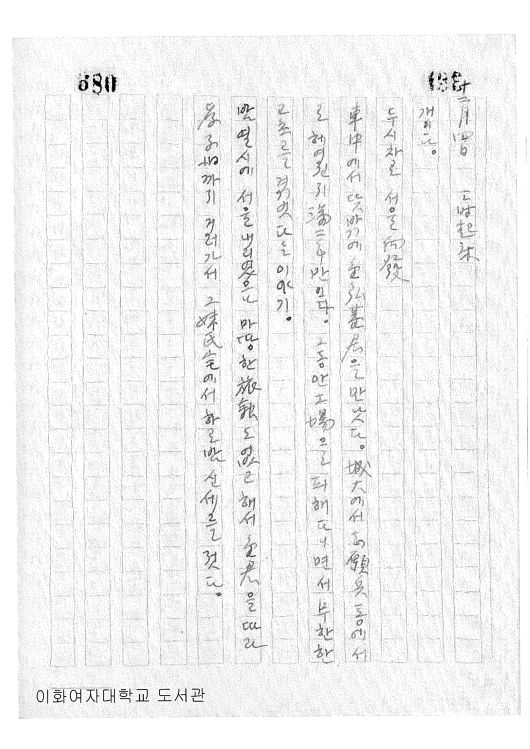 680
十二月 四日
개이다.
두시차로 서울 向發
車中에서 뜻바끼에 金弘基君을 만낫다. 城大에서 志願兵 통에서
로 헤여진지 滿二年만이다. 그동안 工場으로 피해다니면서 무한한
고초를 격것다는 이야기.
밤 열시에 서울 내리엿으나 마땅한 旅館도 없고 해서 金君을 따라
孝子町까지 거러가서 그 妹氏宅에서 하로밤 신세를 젓다.
이화여자대학교 도서관